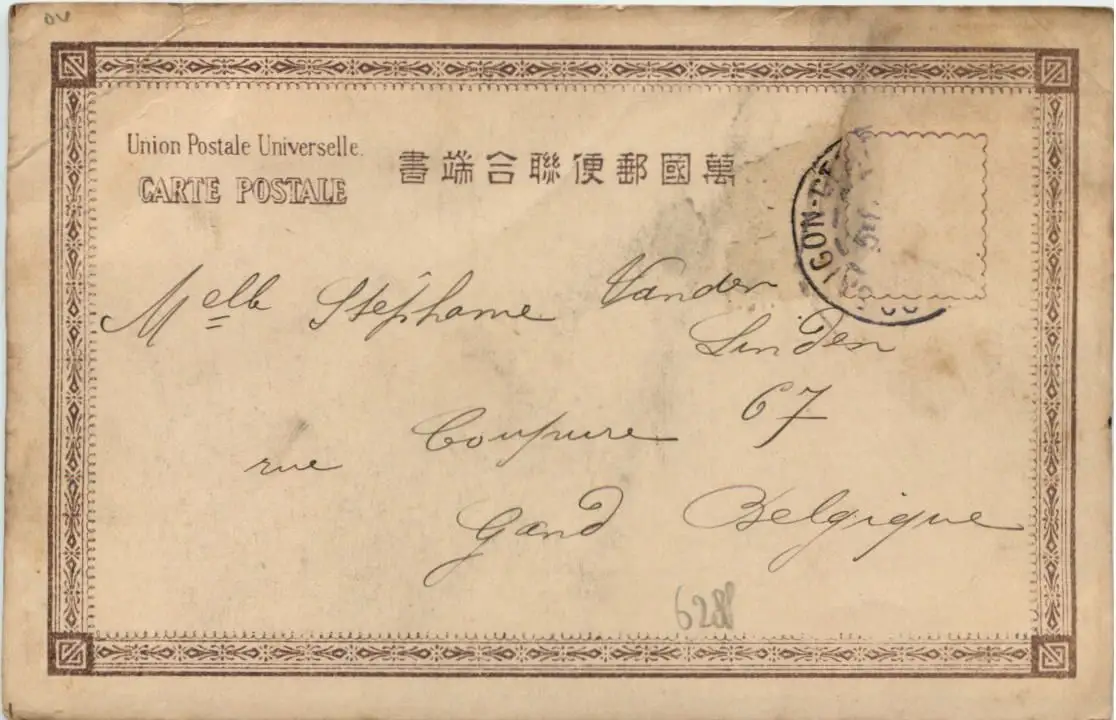 Union Postale Universelle.
CARTE POSTALE
書端合聯便郵國萬
Melle Stéphanie Vanden
Linden
67
rue Coupure
Gand Belgique
628